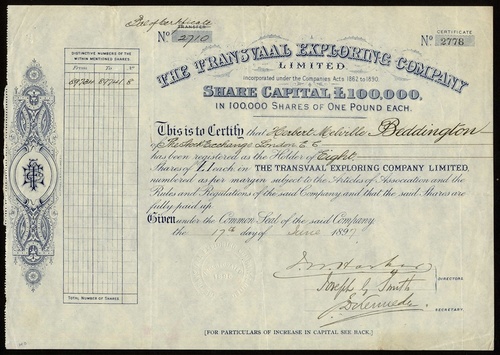 TRANSFER
CERTIFICATE
No. 2710
No. 2778
THE TRANSVAAL EXPLORING COMPANY
LIMITED.
Incorporated under the Companies Acts 1862 to 1890.
SHARE CAPITAL £100,000,
IN 100,000 SHARES OF ONE POUND EACH.
DISTINCTIVE NUMBERS OF THE
WITHIN MENTIONED SHARES
From To
8
This is to Certify that Herbert Melville Beddington
of The Stock Exchange London E C
has been registered as the Holder of Eight
Shares of £1 each in THE TRANSVAAL EXPLORING COMPANY LIMITED,
numbered as per margin subject to the Articles of Association and the
Rules and Regulations of the said Company and that the said Shares are
fully paid up.
Given under the Common Seal of the said Company
the 17th day of June 1897
Joseph G Smith
DIRECTORS.
SECRETARY.
TOTAL NUMBER OF SHARES
[FOR PARTICULARS OF INCREASE IN CAPITAL SEE BACK.]